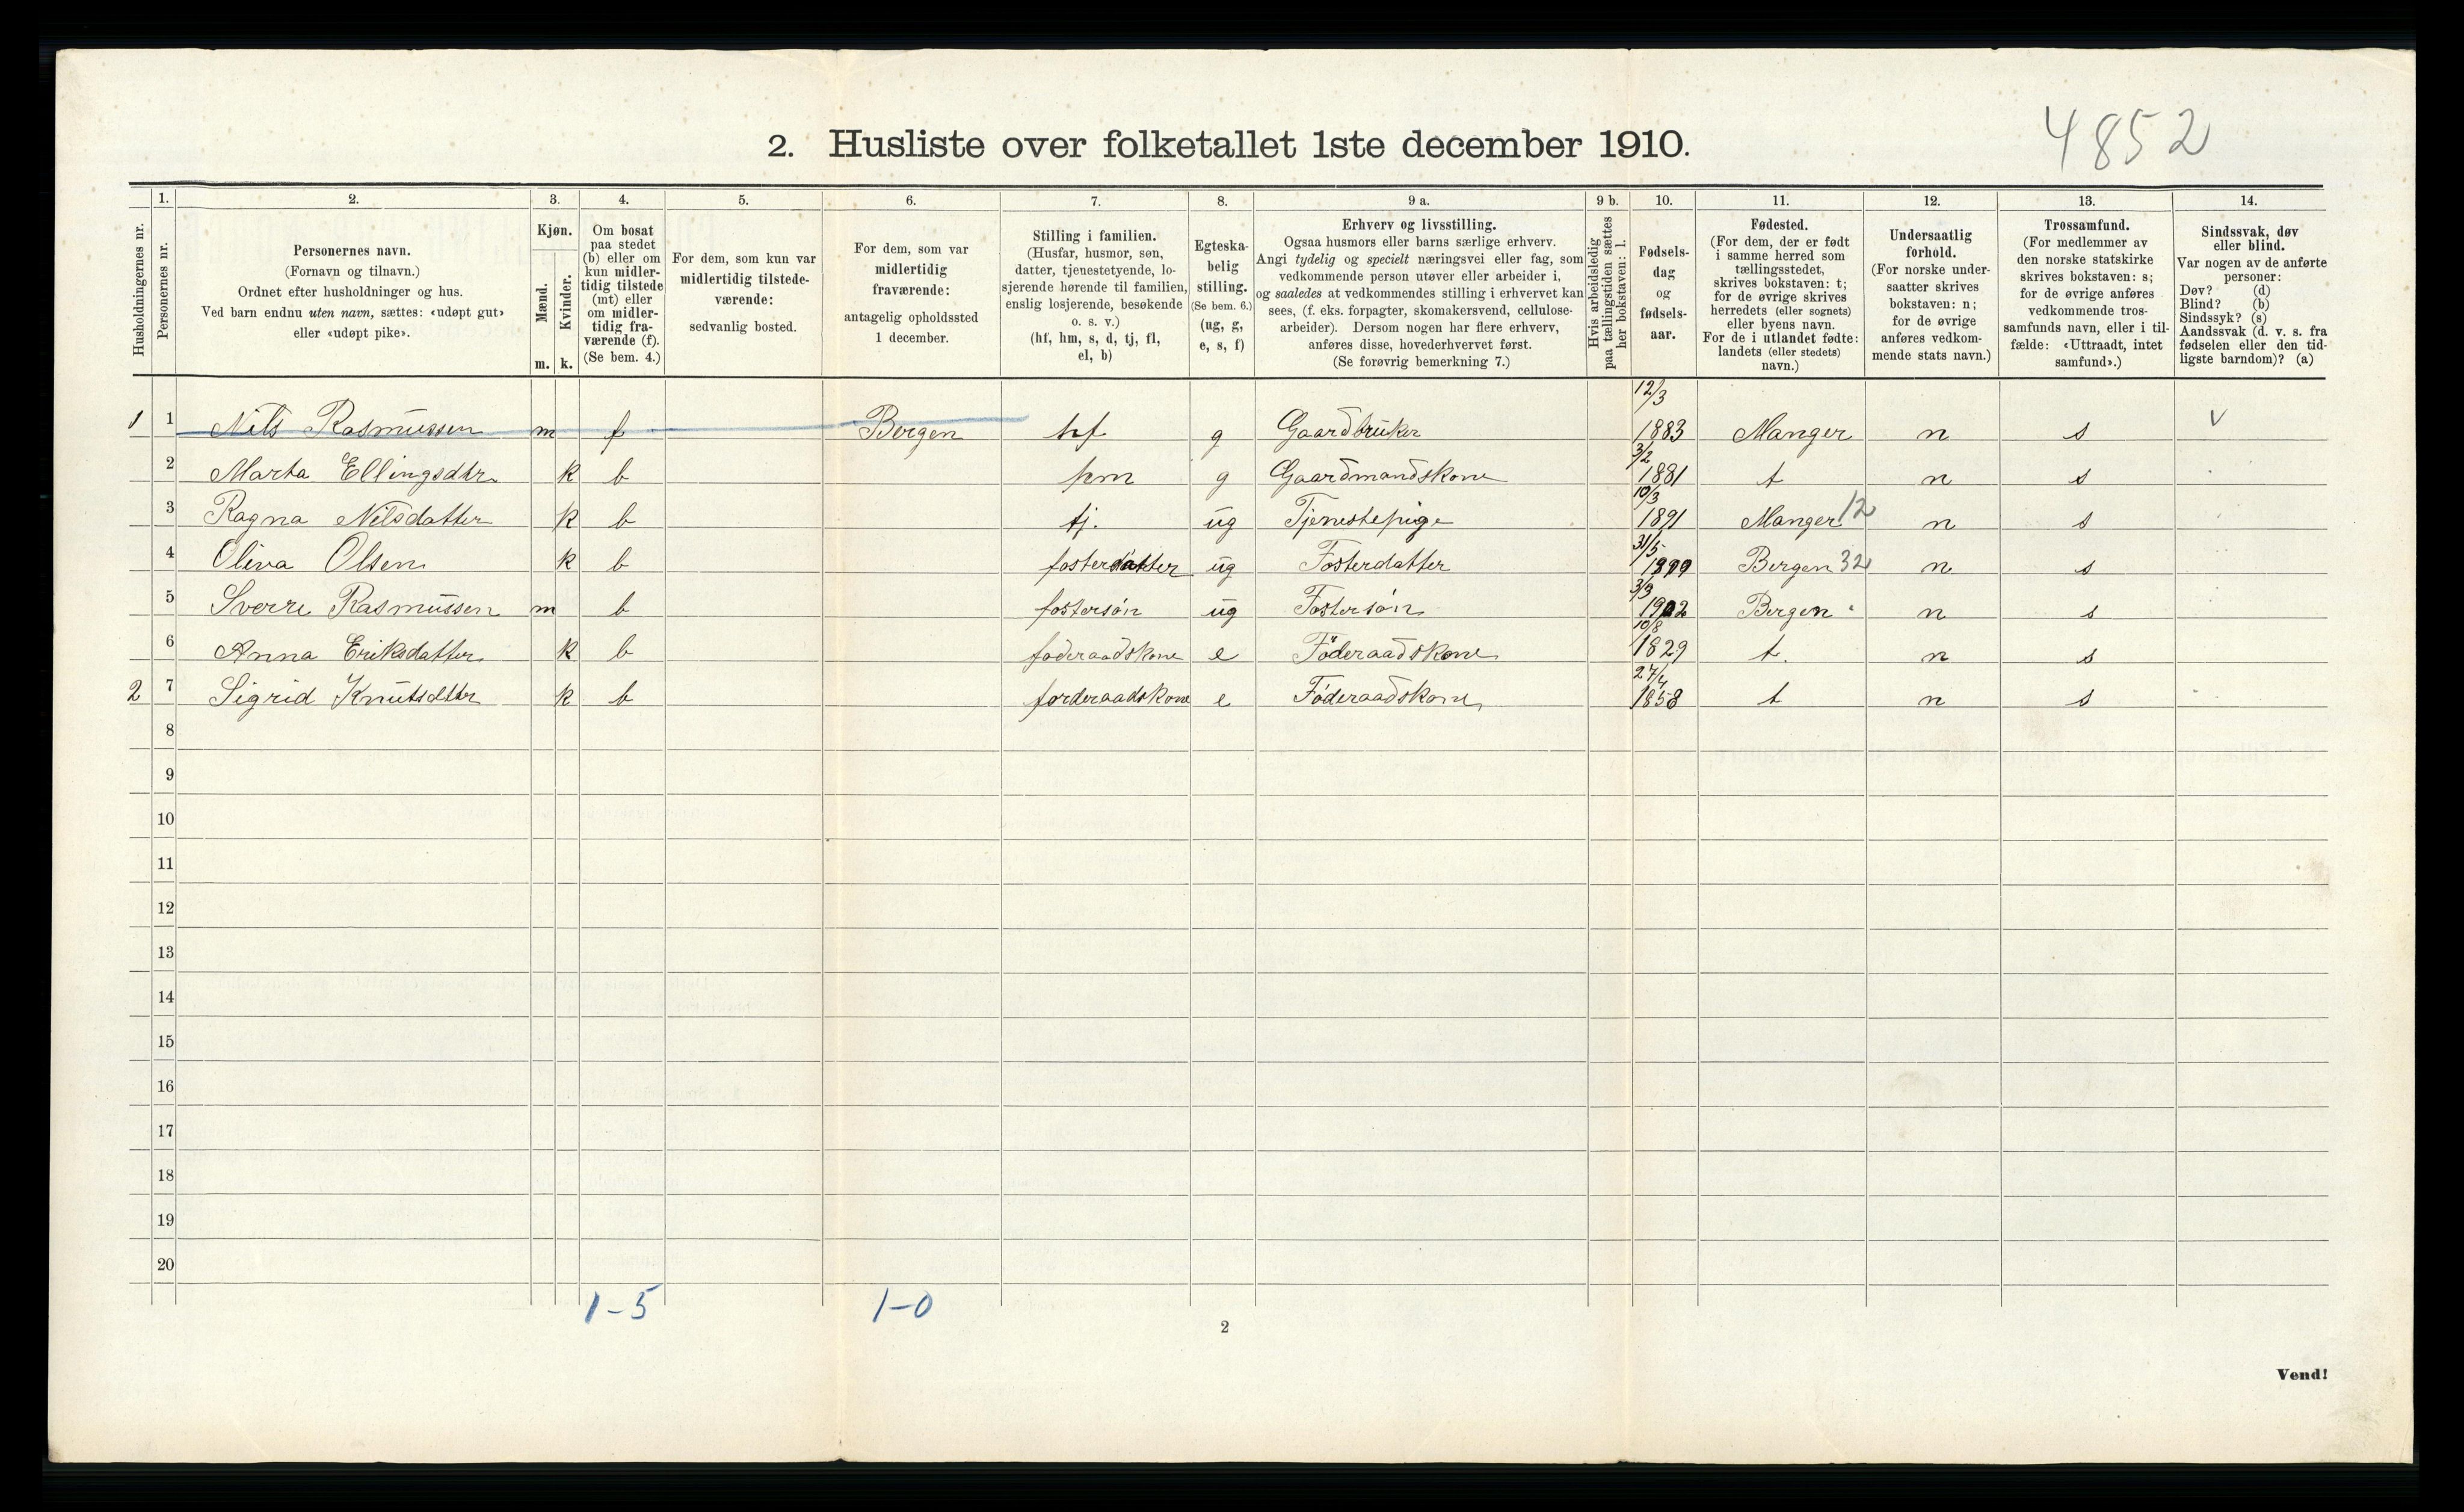 4852
2. Husliste over folketallet 1ste december 1910.
Husholdningernes nr.
1.
Personernes nr.
2.
Personernes navn.
(Fornavn og tilnavn.)
Ordnet efter husholdninger og hus.
Ved barn endnu uten navn, sættes: «udøpt gut»
eller «udøpt pike».
3.
Kjøn.
Mænd.
Kvinder.
m. k.
4.
Om bosat
paa stedet
(b) eller om
kun midler-
tidig tilstede
(mt) eller
om midler-
tidig fra-
værende (f).
(Se bem. 4.)
5.
For dem, som kun var
midlertidig tilstede-
værende:
sedvanlig bosted.
6.
For dem, som var
midlertidig
fraværende:
antagelig opholdssted
1 december.
7.
Stilling i familien.
(Husfar, husmor, søn,
datter, tjenestetyende, lo-
sjerende hørende til familien,
enslig losjerende, besøkende
o. s. v.)
(hf, hm, s, d, tj, fl,
el, b)
8.
Egteska-
belig
stilling.
(Se bem. 6.)
(ug, g,
e, s, f)
9 a.
Erhverv og livsstilling.
Ogsaa husmors eller barns særlige erhverv.
Angi tydelig og specielt næringsvei eller fag, som
vedkommende person utøver eller arbeider i,
og saaledes at vedkommendes stilling i erhvervet kan
sees, (f. eks. forpagter, skomakersvend, cellulose-
arbeider). Dersom nogen har flere erhverv,
anføres disse, hovederhvervet først.
(Se forøvrig bemerkning 7.)
9 b.
Hvis arbeidsledig
paa tællingstiden sættes
her bokstaven: l.
10.
Fødsels-
dag
og
fødsels-
aar.
11.
Fødested.
(For dem, der er født
i samme herred som
tællingsstedet,
skrives bokstaven: t;
for de øvrige skrives
herredets (eller sognets)
eller byens navn.
For de i utlandet fødte:
landets (eller stedets)
navn.)
12.
Undersaatlig
forhold.
(For norske under-
saatter skrives
bokstaven: n;
for de øvrige
anføres vedkom-
mende stats navn.)
13.
Trossamfund.
(For medlemmer av
den norske statskirke
skrives bokstaven: s;
for de øvrige anføres
vedkommende tros-
samfunds navn, eller i til-
fælde: «Uttraadt, intet
samfund».)
14.
Sindssvak, døv
eller blind.
Var nogen av de anførte
personer:
Døv? (d)
Blind? (b)
Sindssyk? (s)
Aandssvak (d. v. s. fra
fødselen eller den tid-
ligste barndom)? (a)
1 1 Nils Rasmussen m f Bergen hf g Gaardbruker 12/3 1883 Manger n s v
2 Marta Ellingsdtr. k b hm g Gaardmandskone 3/2 1881 t n s
3 Ragna Nilsdatter k b tj. ug Tjenestepige 10/3 1891 Manger 12 n s
4 Oliva Olsen k b fosterdatter ug Fosterdatter 31/5 1899 Bergen 32 n s
5 Sverre Rasmussen m b fostersön ug Fostersön 3/3 1902 Bergen " n s
6 Anna Eriksdatter k b föderaadskone e Föderaadskone 10/8 1829 t. n s
2 7 Sigrid Knutsdtr k b forderaadskone e Föderaadskone 27/4 1858 t n s
8
9
10
11
12
13
14
15
16
17
18
19
20
1-5 1-0
2
Vend!